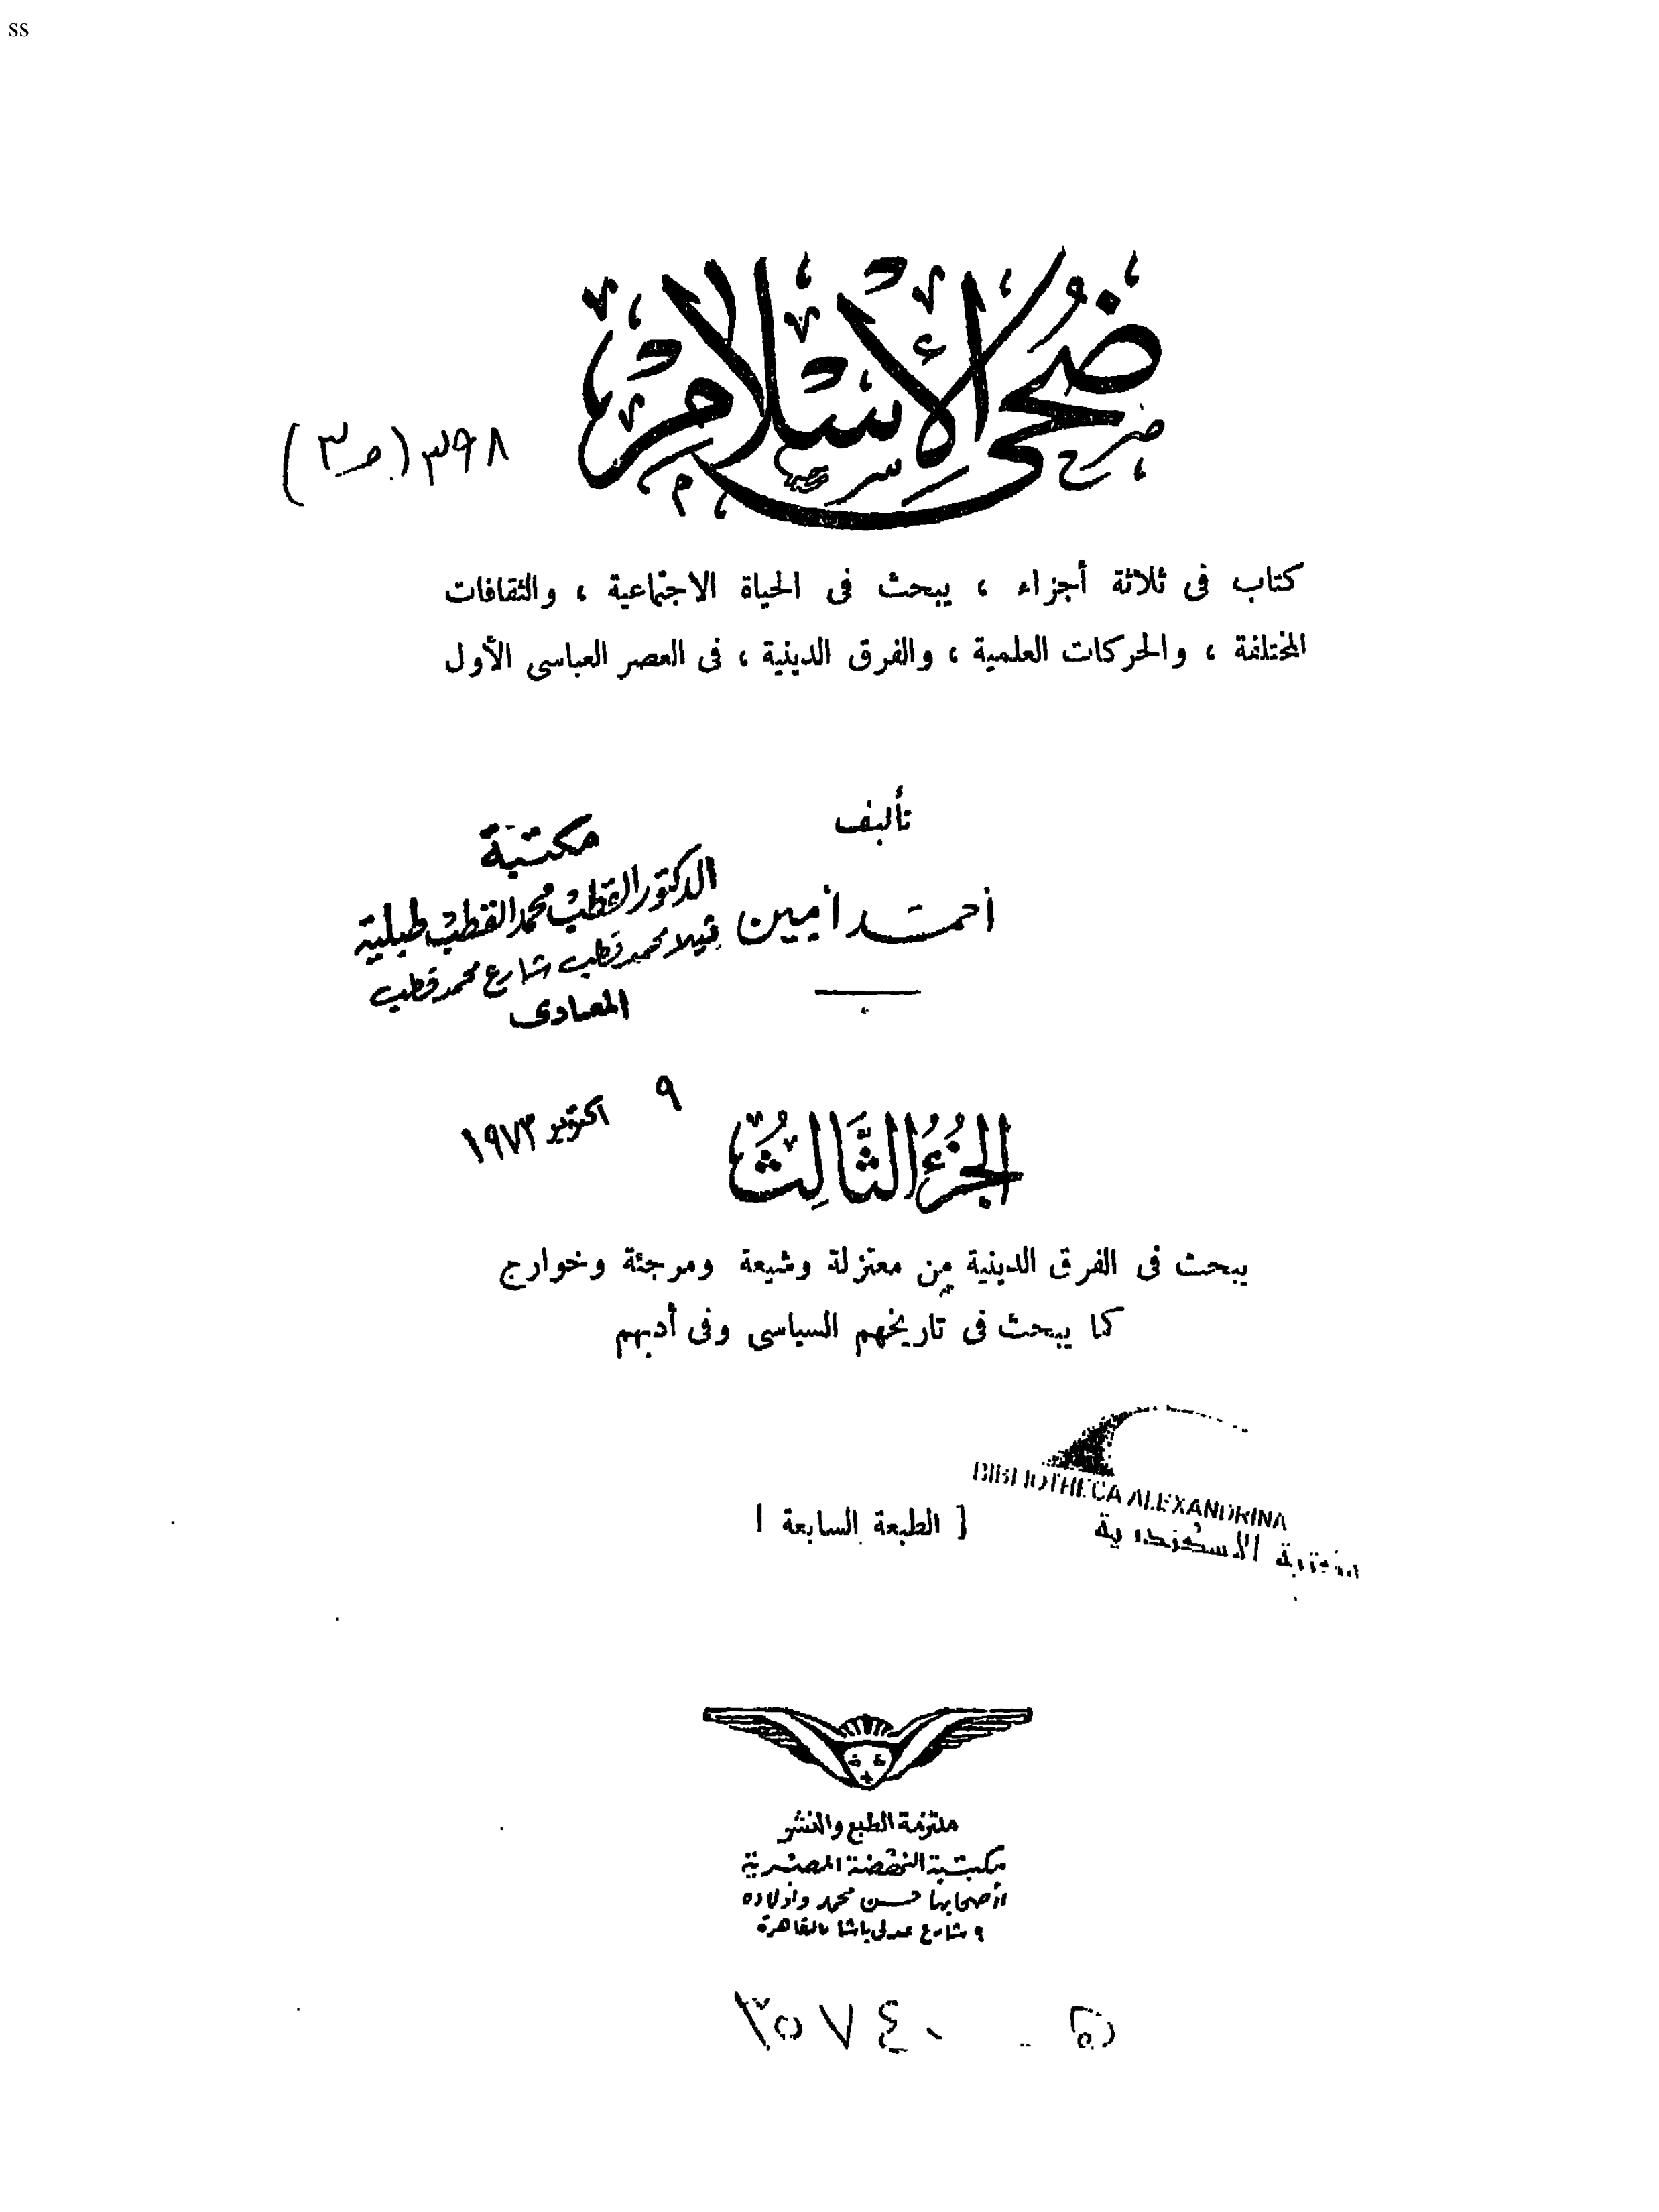 ss
ضُحَى الإِسْلَامِ
٣٩٨ (ج٣)
كتاب فى ثلاثة أجزاء ، يبحث فى الحياة الاجتماعية ، والثقافات
المختلفة ، والحركات العلمية ، والفرق الدينية ، فى العصر العباسى الأول
تأليف
أحمد أمين
مكتبة
الدكتور القطب محمد القطب طبلية
فيلا محمد قطب شارع محمد قطب
المعادى
٩ اكتوبر ١٩٧٣
الجُزْءُ الثَّالِثُ
يبحث فى الفرق الدينية من معتزلة وشيعة ومرجئة وخوارج
كما يبحث فى تاريخهم السياسى وفى أدبهم
BIBLIOTHECA ALEXANDRINA
مكتبة الاسكندرية
[ الطبعة السابعة ]
ملتزمة الطبع والنشر
مكتبة النهضة المصرية
لأصحابها حسن محمد وأولاده
٩ شارع عدلى باشا بالقاهرة